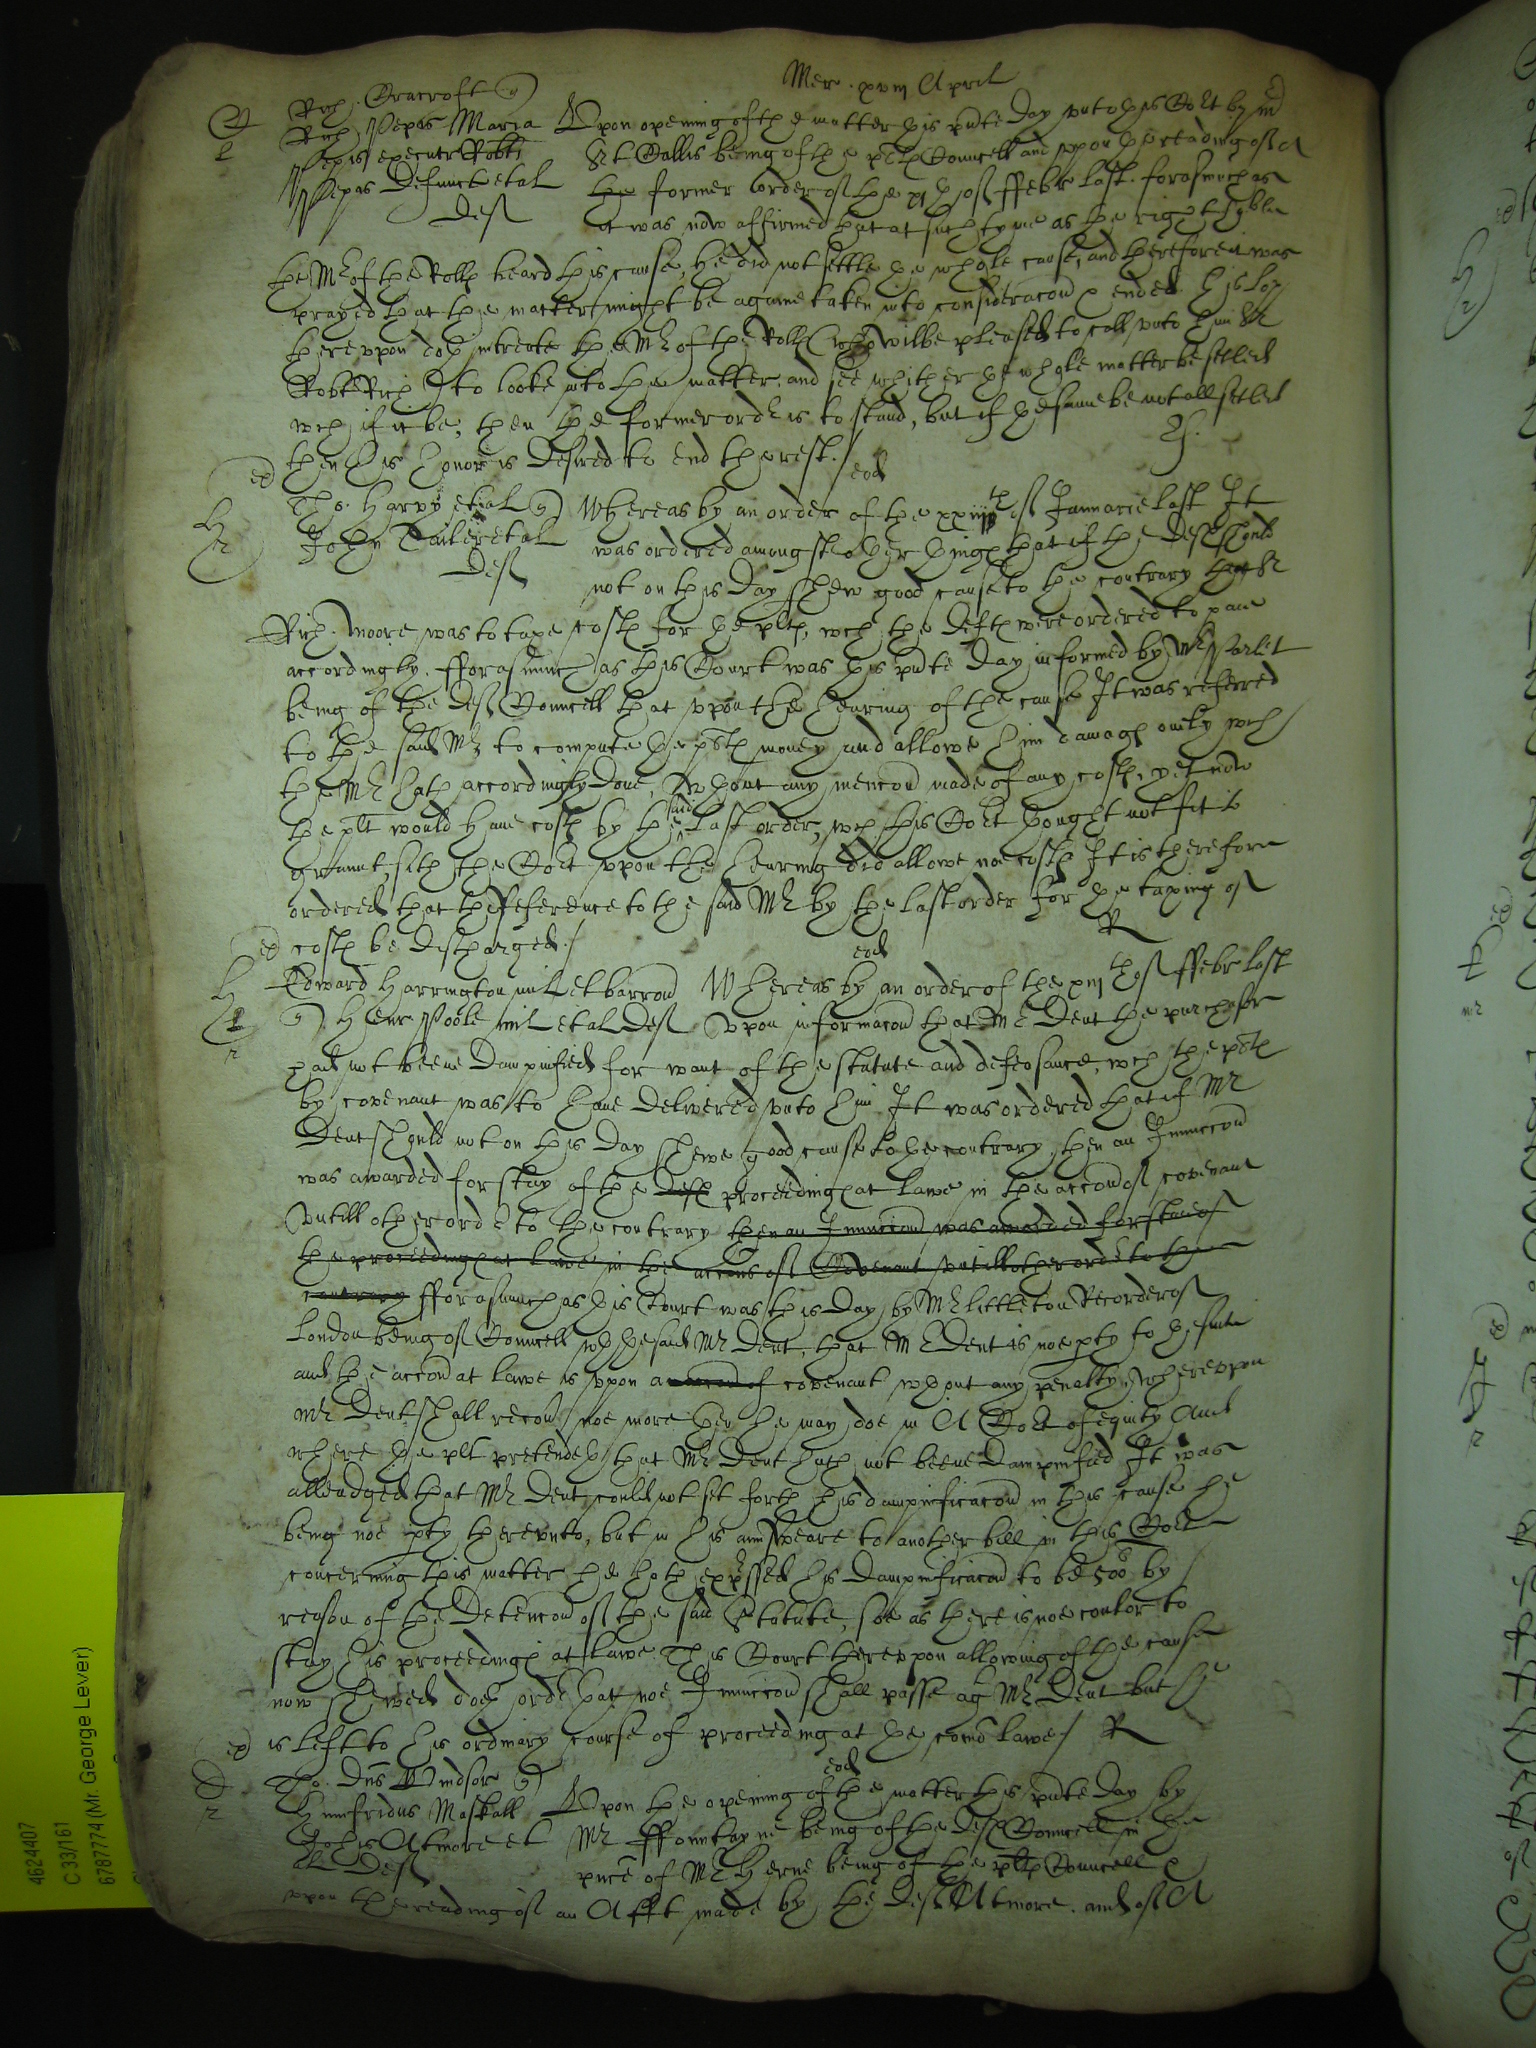 Mer. xviij April
Rich. Gracroft q
Rich. Pepis Maria Upon opening of the matter this pnte day vnto this Co:rt by mr
Pepis execut:r Rob:ti St Gallis being of the pl:ts Councell and vppon the reading of A
Pepis defunct et al the former order of the xjth of ffebr last. forasmuch as
Def it was now affirmed that at such tyme as the right ho:ble
the Mr of the Rolls heard this cause, he did not settle the whole cause, and therefore it was
prayed that the matter might be againe taken into consideracon & ended. His Lop
herevpon doth intreate the Mr of the Rolls (who wilbe pleased to call vnto him Sr
Robt Rich) to looke into the matter, and see whither the whole matter be setled
wch if it be, then the former ordr is to stand, but if the same be not all setled
then his honor is desired to end the rest./
eod
Tho. Harvy et al q Whereas by an order of the xxiiijth of Januarie last It
John Tailer et al was ordered amongst other things that if the Deft should
Def not on this day shew good cause to the contrary that Sr
Rich. Moore was to taxe costs for the plt, wch the defts were ordered to paie
accordingly. fforasmuch as this Court was this pnte day informed by Mr
being of the Defts Councell that vpon the hearing of the cause It was referred
to the said Mr to compute the plts money and allowe him damags onely wch
the Mr hath accordingly done, wthout any mencon made of any costs, yet now
the plt would haue costs by the said last order, wch this Cort thought not fit to
graunt, sith the Cort vpon the hearing did allowe noe costs It is therefore
ordered that the Reference to the said Mr by the last order for the taxing of
costs be discharged./ R
eod
Edward Harrington mil et barron Whereas by an order of the xiijth of ffebr last
q Henr Poole mil et al Def vpon informacon that Mr Dent the purchaser
had not beene dampnified for want of the statute and defeosance, wch the plt
by covenant was to haue delivered vnto him It was ordered that if Mr
Dent should not on this day shewe good cause to the contrary, then an Iniunccon
was awarded for stay of the defts proceedings at lawe in the accon of covenant
vntill other ordr to the contrary then an Iniunccon was awarded for staie of
the proceedings at Lawe in the accons of Covenant vntill other ordr to the
contrary fforasmuch as this Court was this day by Mr Littleton Recorder of
London being of Councell wth the said Mr Dent, that Mr Dent is noe pty to the suite
and the accon at Lawe is vpon a accon of covenant wthout any penalty, wherevpon
Mr Dent shall recou noe more then he may doe in A Cort of equity And
where the plt pretendeth that Mr Dent hath not beene dampnified It was
alleadged that Mr Dent could not set forth his dampnificacon in this cause he
being noe pty therevnto, but in his aunsweare to another bill in this Cort
concerning this matter he hath expssed his dampnificacon to be 500li by
reason of the detencon of the said Statute, soe as there is noe coulor to
stay his proceedings at lawe This Court therevpon allowing of the cause
now shewed doth ordr that noe Iniunccon shall passe agt Mr Dent but he
is left to his ordinary course of proceeding at the comon lawe/ R
eod
Tho. Dns Windsor q
Humfridus Maskall Upon the opening of the matter this pnte day by
Johis Atmore et Mr ffountayne being of the defts Councell in the
al Def pnce of Mr Herne being of the plts Councell &
vpon the reading of an Afft made by the deft Atmore. and of A
4624407
C 33/161
6787774 (Mr. George Lever)